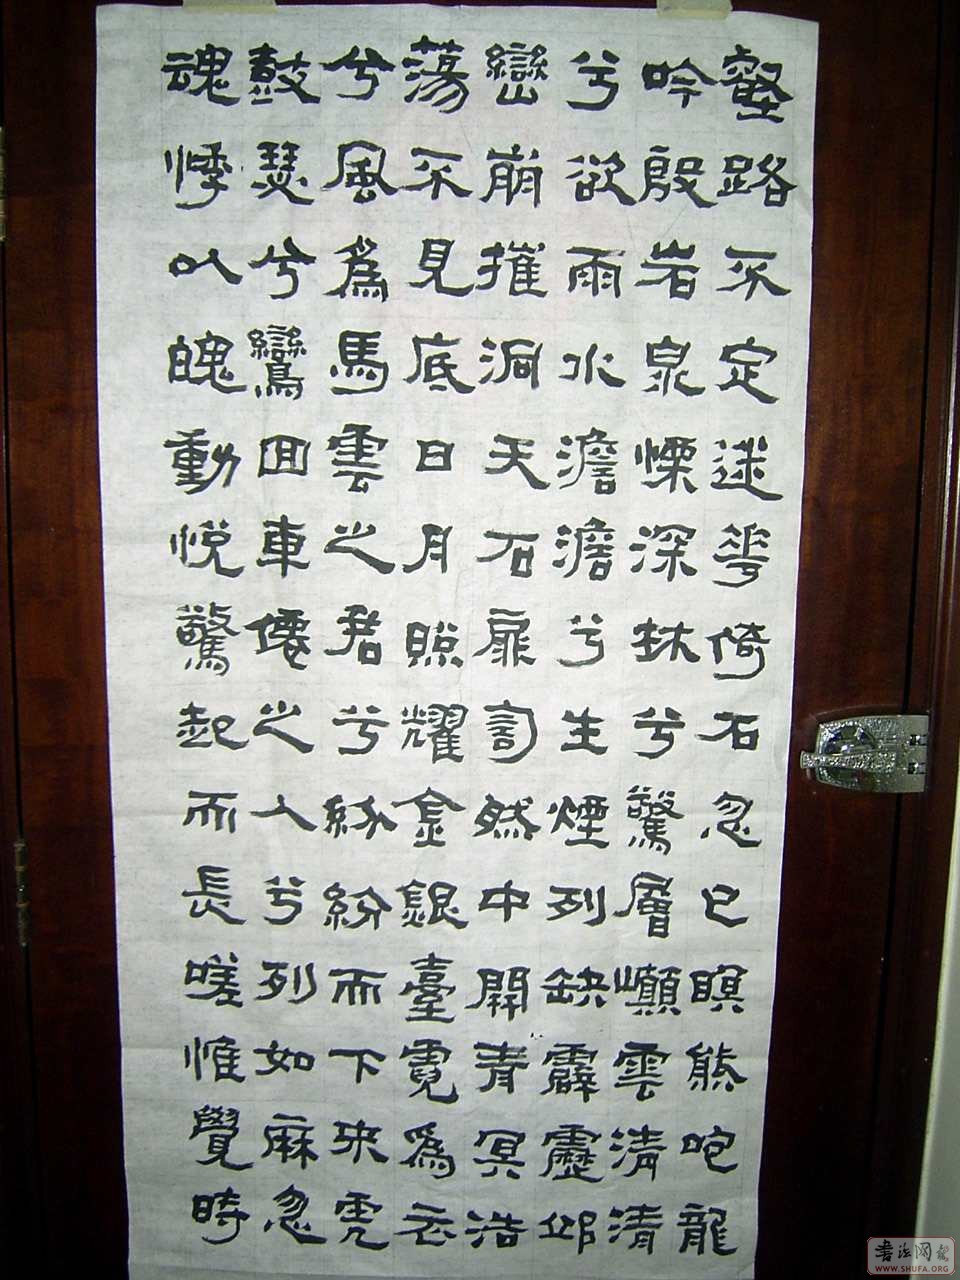 壑路不定迷花倚石忽已瞑熊咆龍
吟殷岩泉慄深林兮驚層巔雲清清
兮欲雨水澹澹兮生煙列缺霹靂邱
巒崩摧洞天石扉訇然中開青冥浩
蕩不見底日月照耀金銀臺霓爲衣
兮風爲馬雲之君兮紛紛而下來虎
鼓瑟兮鸞回車僊之人兮列如麻忽
魂悸以魄動悅驚起而長嗟惟覺時
书法网
WWW.SHUFA.ORG